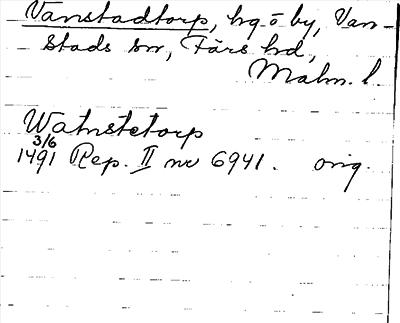 Vanstadtorp, hg o by, Van-
stads sn, Färs hd,
Malm. l.
Watnstetorp
3/6
1491 Rep. II nr 6941. orig.